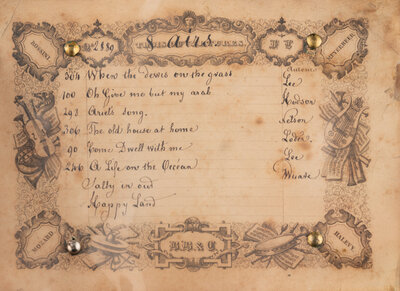 ROSSINI
No 2889
8 Airs
MEYERBEER
364 When the dews on the grass Lee
100 Oh Give me but my arab Hudson
293 Ariels Song. Nelson
306 The old house at home Loder.
90 Come Dwell with me Lee
246 A Life on the Occean
Sally in our
Happy Land
MOZARD
B.B & C.
HALEVY